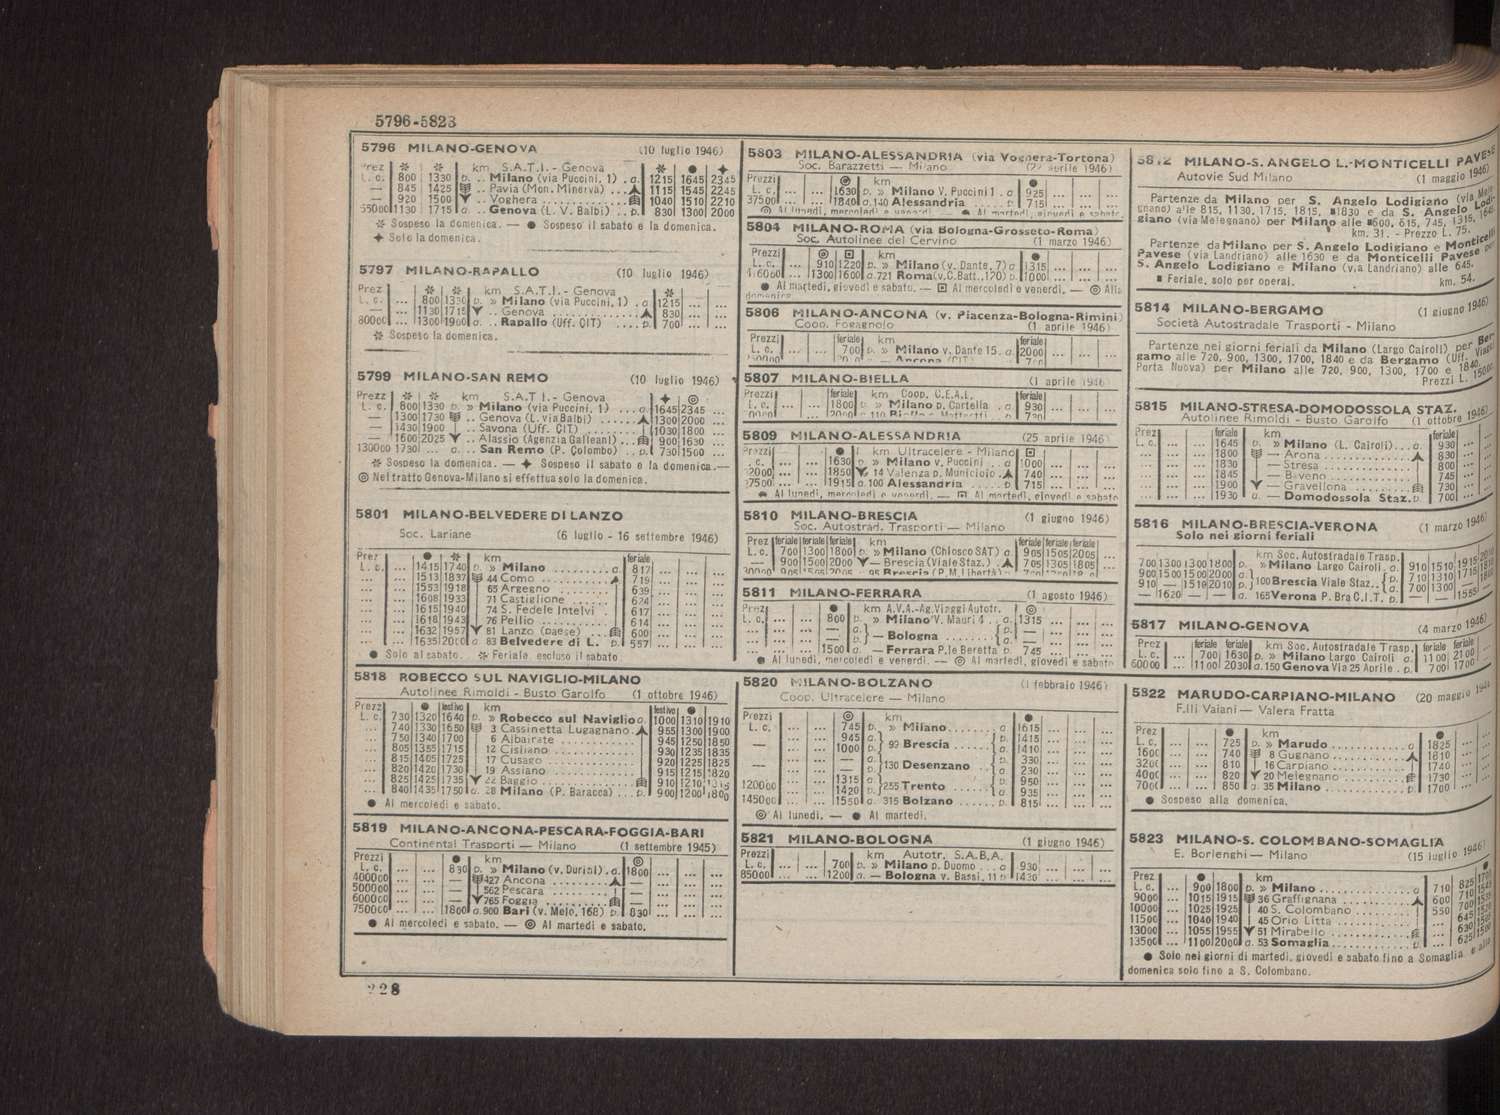 5796-5823
5796 MILANO-GENOVA (10 luglio 1946)
Prez km S.A.T.I. - Genova
L. c. 800 1330 p. .. Milano (via Puccini, 1) . a. 1215 1645 2345
— 845 1425 .. Pavia (Mon. Minerva) ... 1115 1545 2245
— 920 1500 .. Voghera 1040 1510 2210
55000 1130 1715 a. .. Genova (L. V. Balbi) .. p. 830 1300 2000
Sospeso la domenica. — ● Sospeso il sabato e la domenica.
✦ Solo la domenica.
5797 MILANO-RAPALLO (10 luglio 1946)
Prez km S.A.T.I. - Genova
L. c. ... 800 1330 p. » Milano (via Puccini, 1) . a 1215 ... ...
— ... 1130 1715 .. Genova 830 ... ...
80000 ... 1300 1900 a. .. Rapallo (Uff. CIT) .... p. 700 ... ...
Sospeso la domenica.
5799 MILANO-SAN REMO (10 luglio 1946)
Prezz km S.A.T.I - Genova
L. c. 800 1330 p. » Milano (via Puccini, 1) ... a 1645 2345 ...
— 1300 1730 .. Genova (L. via Balbi) ... 1300 2000 ...
— 1430 1900 — Savona (Uff. CIT) 1030 1800 ...
— 1600 2025 .. Alassio (Agenzia Galleani) ... 900 1630 ...
130000 1730 ... a. .. San Remo (P. Colombo) .. p. 730 1500 ...
Sospeso la domenica. — ✦ Sospeso il sabato e la domenica.—
◎ Nel tratto Genova-Milano si effettua solo la domenica.
5801 MILANO-BELVEDERE DI LANZO
Soc. Lariane (6 luglio - 16 settembre 1946)
Prez ● km feriale
L. c. ... 1415 1740 p. » Milano ........ a 817 ... ...
... ... 1513 1837 44 Como 719 ... ...
... ... 1553 1918 65 Argegno 639 ... ...
... ... 1608 1933 71 Castiglione 624 ... ...
... ... 1615 1940 74 S. Fedele Intelvi 617 ... ...
... ... 1618 1943 76 Pellio 614 ... ...
... ... 1632 1957 81 Lanzo (paese) 600 ... ...
... ... 1635 2000 a. 83 Belvedere di L. p. 557 ... ...
● Solo al sabato. Feriale, escluso il sabato
5818 ROBECCO SUL NAVIGLIO-MILANO
Autolinee Rimoldi - Busto Garolfo (1 ottobre 1946)
Prezz ● festivo km festivo ●
L. c. 730 1320 1640 p. » Robecco sul Naviglio a. 1000 1310 1910
... 740 1330 1650 3 Cassinetta Lugagnano 955 1300 1900
... 750 1340 1700 6 Albairate 945 1250 1850
... 805 1355 1715 12 Cisliano 930 1235 1835
... 815 1405 1725 17 Cusago 920 1225 1825
... 820 1420 1730 19 Assiano 915 1215 1820
... 825 1425 1735 22 Baggio 910 1210 1315
... 840 1435 1750 a. 28 Milano (P. Baracca) .. p. 900 1200 1800
● Al mercoledì e sabato.
5819 MILANO-ANCONA-PESCARA-FOGGIA-BARI
Continental Trasporti — Milano (1 settembre 1945)
Prezzi ● km ◎
L. c. ... ... 830 p. » Milano (v. Durini) . a. 1800 ... ... ...
400000 ... ... — 427 Ancona — ... ... ...
500000 ... ... — 562 Pescara — ... ... ...
600000 ... ... — 765 Foggia — ... ... ...
750000 ... ... 1800 a. 900 Bari (v. Melo, 168) p. 830 ... ... ...
● Al mercoledì e sabato. — ◎ Al martedì e sabato.
228
5803 MILANO-ALESSANDRIA (via Voghera-Tortona)
Soc. Barazzetti — Milano (22 aprile 1946)
Prezzi ◎ km ●
L. c. ... ... 1630 p. » Milano V. Puccini 1 . a 925 ... ... ...
37500 ... ... 1840 a. 140 Alessandria p 715 ... ... ...
◎ Al lunedì, mercoledì e venerdì. — ● Al martedì, giovedì e sabato
5804 MILANO-ROMA (via Bologna-Grosseto-Roma)
Soc. Autolinee del Cervino (1 marzo 1946)
Prezzi ◎ ⊡ km ●
L. c. ... 910 1220 p. » Milano (v. Dante, 7) a 1315 ... ... ...
... 1300 1600 a. 721 Roma (v. C. Batt., 120) p. 1000 ... ... ...
● Al martedì, giovedì e sabato. — ⊡ Al mercoledì e venerdì. — ◎ Alla
domenica
5806 MILANO-ANCONA (v. Piacenza-Bologna-Rimini)
Coop. Fogagnolo (1 aprile 1946)
Prezzi feriale km feriale
L. c. ... ... 700 p. » Milano v. Dante 15 . a. 2000 ... ... ...
Ancona (CIT)
5807 MILANO-BIELLA (1 aprile 1946)
Prezzi feriale km Coop. C.E.A.L. feriale
L. c. ... ... 1800 p. » Milano p. Cartella . a 930 ... ... ...
5809 MILANO-ALESSANDRIA (25 aprile 1946)
Prezzi ● km Ultracelere - Milano ⊡
L. c. ... ... 1630 p. » Milano v. Puccini .. a 1000 ... ... ...
32000 ... ... 1850 14 Valenza p. Municipio 740 ... ... ...
37500 ... ... 1915 a. 100 Alessandria p. 715 ... ... ...
● Al lunedì, mercoledì e venerdì. — ⊡ Al martedì, giovedì e sabato
5810 MILANO-BRESCIA (1 giugno 1946)
Soc. Autostrad. Trasporti — Milano
Prez feriale feriale feriale km feriale feriale feriale
L. c. 700 1300 1800 p. » Milano (Chiosco SAT) a 905 1505 2005 ...
— 900 1500 2000 — Brescia (Viale Staz.) 705 1305 1805 ...
Brescia (P.M. Libertà)
5811 MILANO-FERRARA (1 agosto 1946)
Prezz ● km A.V.A.-Ag. Viaggi Autotr. ◎
L. c. ... ... 800 p. » Milano V. Mauri 4 . . a 1315 ... ... ...
... ... ... — — Bologna — ... ... ...
... ... ... 1500 a. — Ferrara P. le Beretta p. 745 ... ... ...
● Al lunedì, mercoledì e venerdì. — ◎ Al martedì, giovedì e sabato
5820 MILANO-BOLZANO (1 febbraio 1946)
Coop. Ultracelere — Milano
Prezzi ◎ km ●
L. c. ... ... 745 p. » Milano a 1615 ... ... ...
— ... ... 945 a. 1415 ... ... ...
1000 p. 99 Brescia 1410 ... ... ...
— ... ... — 130 Desenzano 330 ... ... ...
— 230 ... ... ...
1315 a. 950 ... ... ...
120000 ... ... 1420 p. 255 Trento 935 ... ... ...
145000 ... ... 1550 a. 315 Bolzano p. 815 ... ... ...
◎ Al lunedì. — ● Al martedì.
5821 MILANO-BOLOGNA (1 giugno 1946)
Prezzi km Autotr. S.A.B.A.
L. c. ... ... 700 p. » Milano p. Duomo ... a. 930 ... ... ...
85000 ... ... 1200 a. — Bologna v. Bassi, 11 p 1430 ... ... ...
5812 MILANO-S. ANGELO L.-MONTICELLI PAVESE
Autovie Sud Milano (1 maggio 1946)
Partenze da Milano per S. Angelo Lodigiano (via Mele-
gnano) alle 815, 1130, 1715, 1815, ■1830 e da S. Angelo Lodi-
giano (via Melegnano) per Milano alle ■600, 615, 745, 1315, 1645.
km. 31. - Prezzo L. 75.
Partenze da Milano per S. Angelo Lodigiano e Monticelli
Pavese (via Landriano) alle 1630 e da Monticelli Pavese per
S. Angelo Lodigiano e Milano (via Landriano) alle 645.
■ Feriale, solo per operai. km. 54.
5814 MILANO-BERGAMO (1 giugno 1946)
Società Autostradale Trasporti - Milano
Partenze nei giorni feriali da Milano (Largo Cairoli) per Ber-
gamo alle 720, 900, 1300, 1700, 1840 e da Bergamo (Uff. Viaggi
Porta Nuova) per Milano alle 720, 900, 1300, 1700 e 1840.
Prezzi L. 15000
5815 MILANO-STRESA-DOMODOSSOLA STAZ.
Autolinee Rimoldi - Busto Garolfo (1 ottobre 1946)
Prez feriale km feriale
L. c. ... ... 1645 p. » Milano (L. Cairoli) .. a 930 ... ...
... ... ... 1800 — Arona 830 ... ...
... ... ... 1830 — Stresa 800 ... ...
... ... ... 1845 — Baveno 745 ... ...
... ... ... 1900 — Gravellona 730 ... ...
... ... ... 1930 a. — Domodossola Staz. p. 700 ... ...
5816 MILANO-BRESCIA-VERONA (1 marzo 1946)
Solo nei giorni feriali
km Soc. Autostradale Trasp.
700 1300 1300 1800 p. » Milano Largo Cairoli . a 910 1510 1915 2010
900 1500 1500 2000 a. 100 Brescia Viale Staz. .. p. 710 1310 1715 1810
910 — 1510 2010 p. a. 700 1300 — 1800
— 1620 — — a. 165 Verona P. Bra C.I.T. p. — — 1555 —
5817 MILANO-GENOVA (4 marzo 1946)
Prezz feriale feriale km Soc. Autostradale Trasp. feriale feriale
L. c. ... 700 1630 p. » Milano Largo Cairoli a. 1100 2100 ...
60000 ... 1100 2030 a. 150 Genova Via 25 Aprile . p. 700 1700 ...
5822 MARUDO-CARPIANO-MILANO (20 maggio 1946)
F.lli Vaiani — Valera Fratta
Prez ● km ●
L. c. ... ... 725 p. » Marudo a 1825 ... ...
1600 ... ... 740 8 Gugnano 1810 ... ...
3200 ... ... 810 16 Carpiano 1740 ... ...
4000 ... ... 820 20 Melegnano 1730 ... ...
7000 ... ... 850 a. 35 Milano p. 1700 ... ...
● Sospeso alla domenica.
5823 MILANO-S. COLOMBANO-SOMAGLIA
E. Borlenghi — Milano (15 luglio 1946)
Prez ● km ●
L. c. ... 900 1800 p. » Milano a 710 825
9000 ... 1015 1915 36 Graffignana 600 710
10000 ... 1025 1925 40 S. Colombano 550 700
11500 ... 1040 1940 45 Orio Litta ... 645
13000 ... 1055 1955 51 Mirabello ... 630
13500 ... 1100 2000 a. 53 Somaglia p. ... 625
● Solo nei giorni di martedì, giovedì e sabato fino a Somaglia, e alla
domenica solo fino a S. Colombano.